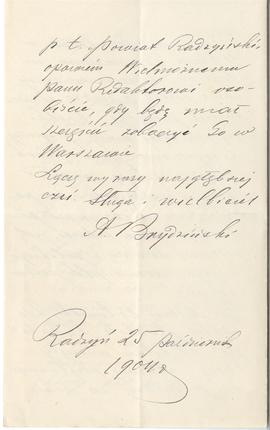 p. t. Powiat Radzyński,
opowiem Wielmożnemu
panu Redaktorowi oso-
biście, gdy będę miał
szczęście zobaczyć Go w
Warszawie
Łączę wyrazy najgłębszej
czci Sługa i wielbiciel
A. Brydziński
Radzyń 25 październik
1904 r